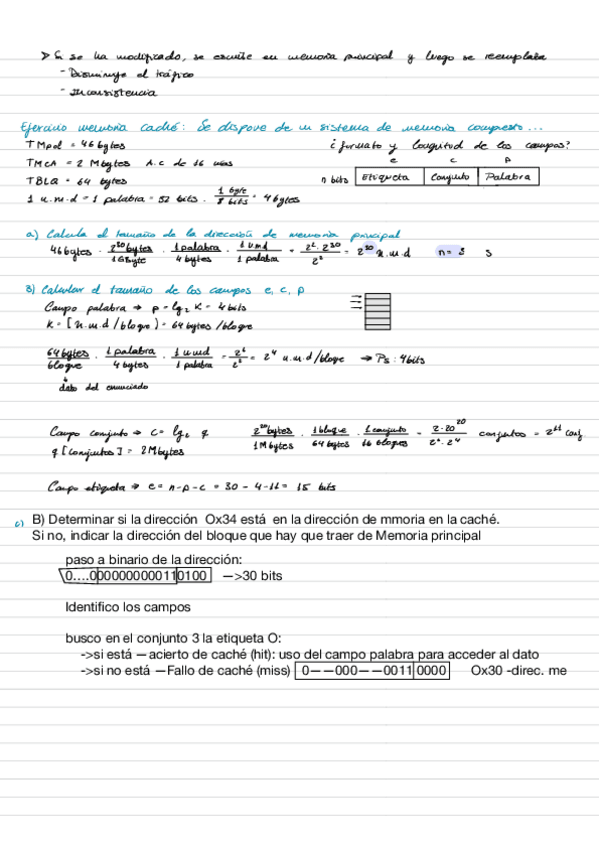 > Si se ha modificado, se escribe en memoria principal y luego se reemplaza
- Disminuye el tráfico
- Inconsistencia
Ejercicio memoria caché: Se dispone de un sistema de memoria compuesto...
TMpal = 4Gbytes ¿formato y longitud de los campos?
e c p
TMCA = 2 Mbytes A.C de 16 vías
TBLQ = 64 bytes n bits Etiqueta Conjunto Palabra
1 u.m.d = 1 palabra = 32 bits · 1 byte / 8 bits = 4 bytes
a) Calcula el tamaño de la dirección de memoria principal
4Gbytes · 2^30 bytes / 1Gbyte · 1 palabra / 4 bytes · 1 u.m.d / 1 palabra = 2^2 · 2^30 / 2^2 = 2^30 u.m.d n = 3 s
3) Calcular el tamaño de los campos e, c, p
Campo palabra → p = lg2 K = 4bits
K = [u.m.d / bloque] = 64 bytes / bloque
64 bytes / bloque · 1 palabra / 4 bytes · 1 umd / 1 palabra = 2^6 / 2^2 = 2^4 u.m.d / bloque → Ps: 4bits
dato del enunciado
Campo conjunto → c = lg2 q 2^20 bytes / 1Mbytes · 1 bloque / 64 bytes · 1 conjunto / 16 bloques = 2·20^20 / 2^6 · 2^4 conjuntos = 2^11 conj.
q [conjuntos] = 2Mbytes
Campo etiqueta → e = n - p - c = 30 - 4 - 11 = 15 bits
c) B) Determinar si la dirección Ox34 está en la dirección de mmoria en la caché.
Si no, indicar la dirección del bloque que hay que traer de Memoria principal
paso a binario de la dirección:
0....000000000000110100 —>30 bits
Identifico los campos
busco en el conjunto 3 la etiqueta O:
->si está — acierto de caché (hit): uso del campo palabra para acceder al dato
->si no está —Fallo de caché (miss) 0——000——0011 0000 Ox30 -direc. me